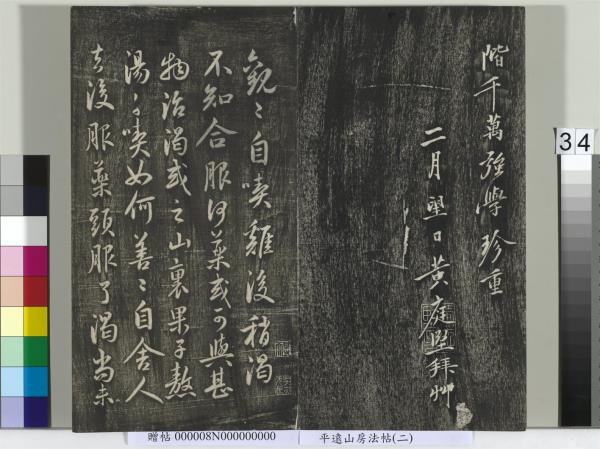 階千萬強學珍重
二月望日黃庭堅拜艸
観〻自喫雞後稍渴
不知合服何藥或可與甚
物治渴或之山裏果子熬
湯〻喫如何善〻自舍人
去後服藥頭服了渴尚未
34
贈帖 000008N000000000 平遠山房法帖(二)